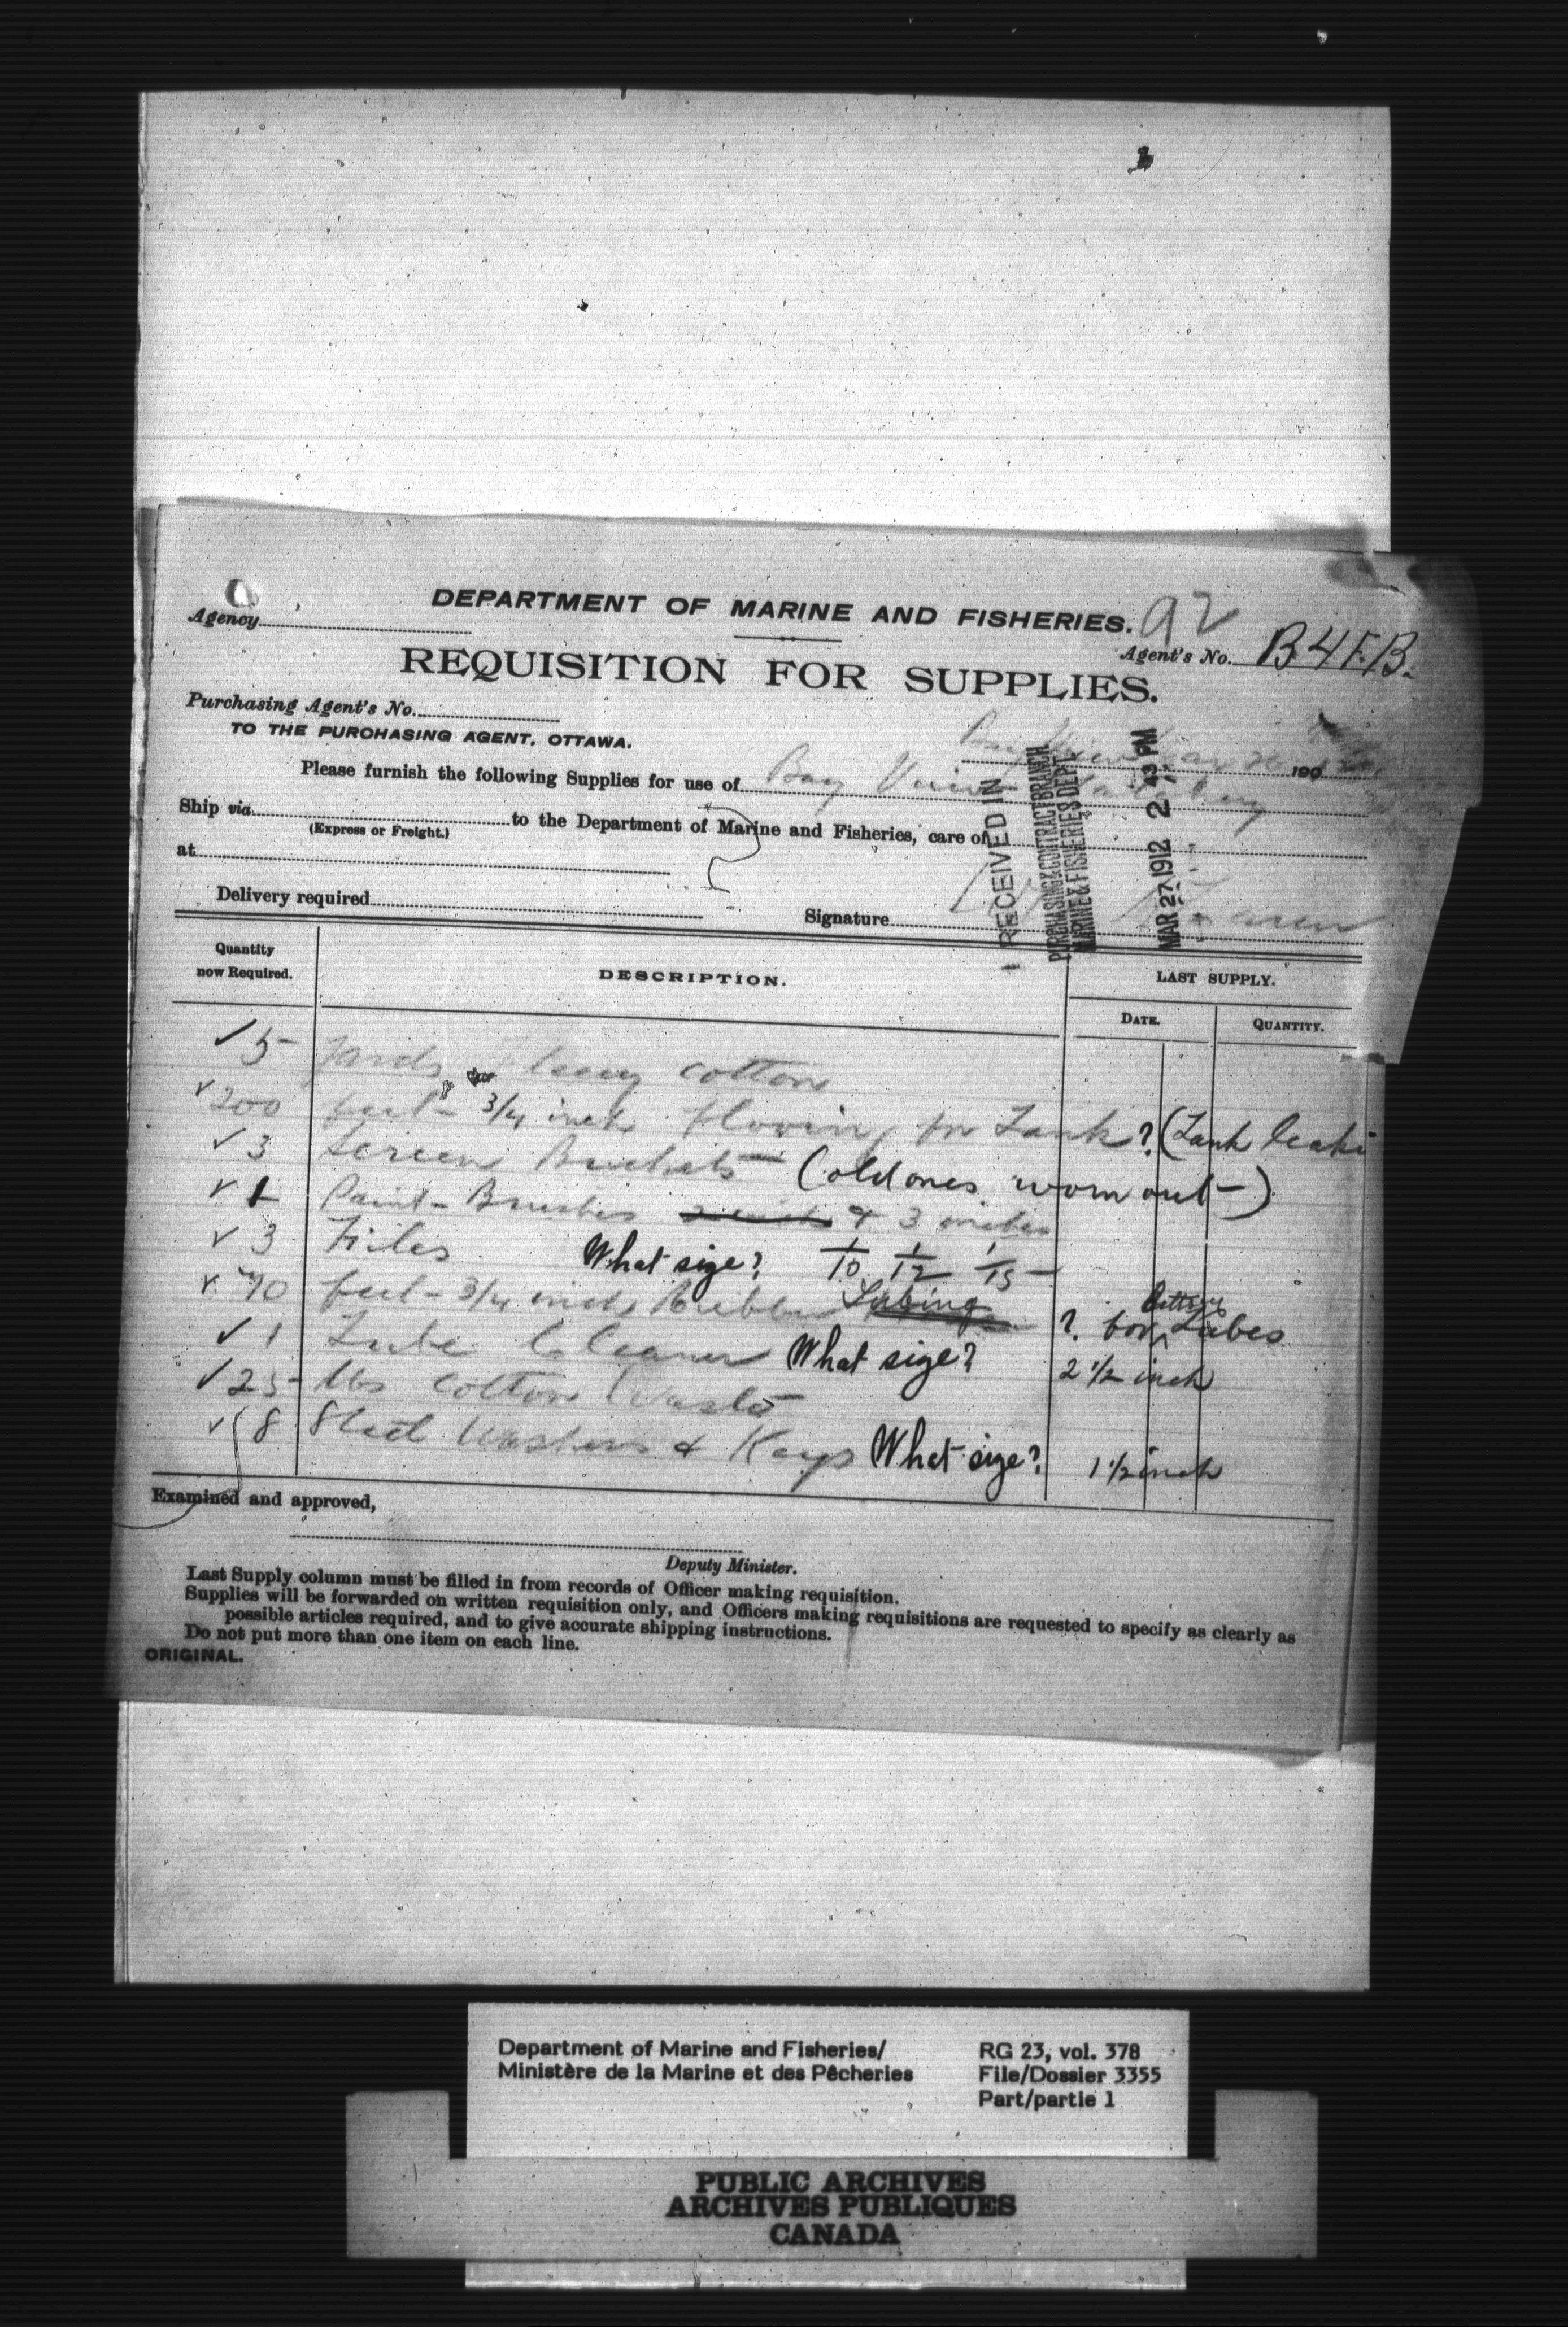 DEPARTMENT OF MARINE AND FISHERIES. 92
Agency
Agent's No. B4F.B.
REQUISITION FOR SUPPLIES.
Purchasing Agent's No.
TO THE PURCHASING AGENT, OTTAWA.
190
Please furnish the following Supplies for use of Bay View Hatchery
Ship via to the Department of Marine and Fisheries, care of
(Express or Freight.)
at
Delivery required
Signature
RECEIVED IN
PURCHASING & CONTRACT BRANCH
MARINE & FISHERIES DEPT.
MAR 27 1912 2 43 PM
Quantity now Required. DESCRIPTION. LAST SUPPLY.
DATE. QUANTITY.
✓ 5 yards cotton
✓ 200 feet - 3/4 inch flooring for Tank? (Tank leaki
✓ 3 Screen Buckets (old ones worn out)
✓ 1 Paint-Brushes & 3 inches
✓ 3 Files What size? 1/10 1/12 1/15
✓ 70 feet - 3/4 inch Rubber Tubing ? for Tubes
✓ 1 Tube Cleaner What size? 2 1/2 inch
✓ 25 lbs Cotton Waste
✓ 8 Steel Washers & Keys What size? 1 1/2 inch
Examined and approved,
Deputy Minister.
Last Supply column must be filled in from records of Officer making requisition.
Supplies will be forwarded on written requisition only, and Officers making requisitions are requested to specify as clearly as
possible articles required, and to give accurate shipping instructions.
Do not put more than one item on each line.
ORIGINAL.
Department of Marine and Fisheries/
Ministère de la Marine et des Pêcheries
RG 23, vol. 378
File/Dossier 3355
Part/partie 1
PUBLIC ARCHIVES
ARCHIVES PUBLIQUES
CANADA